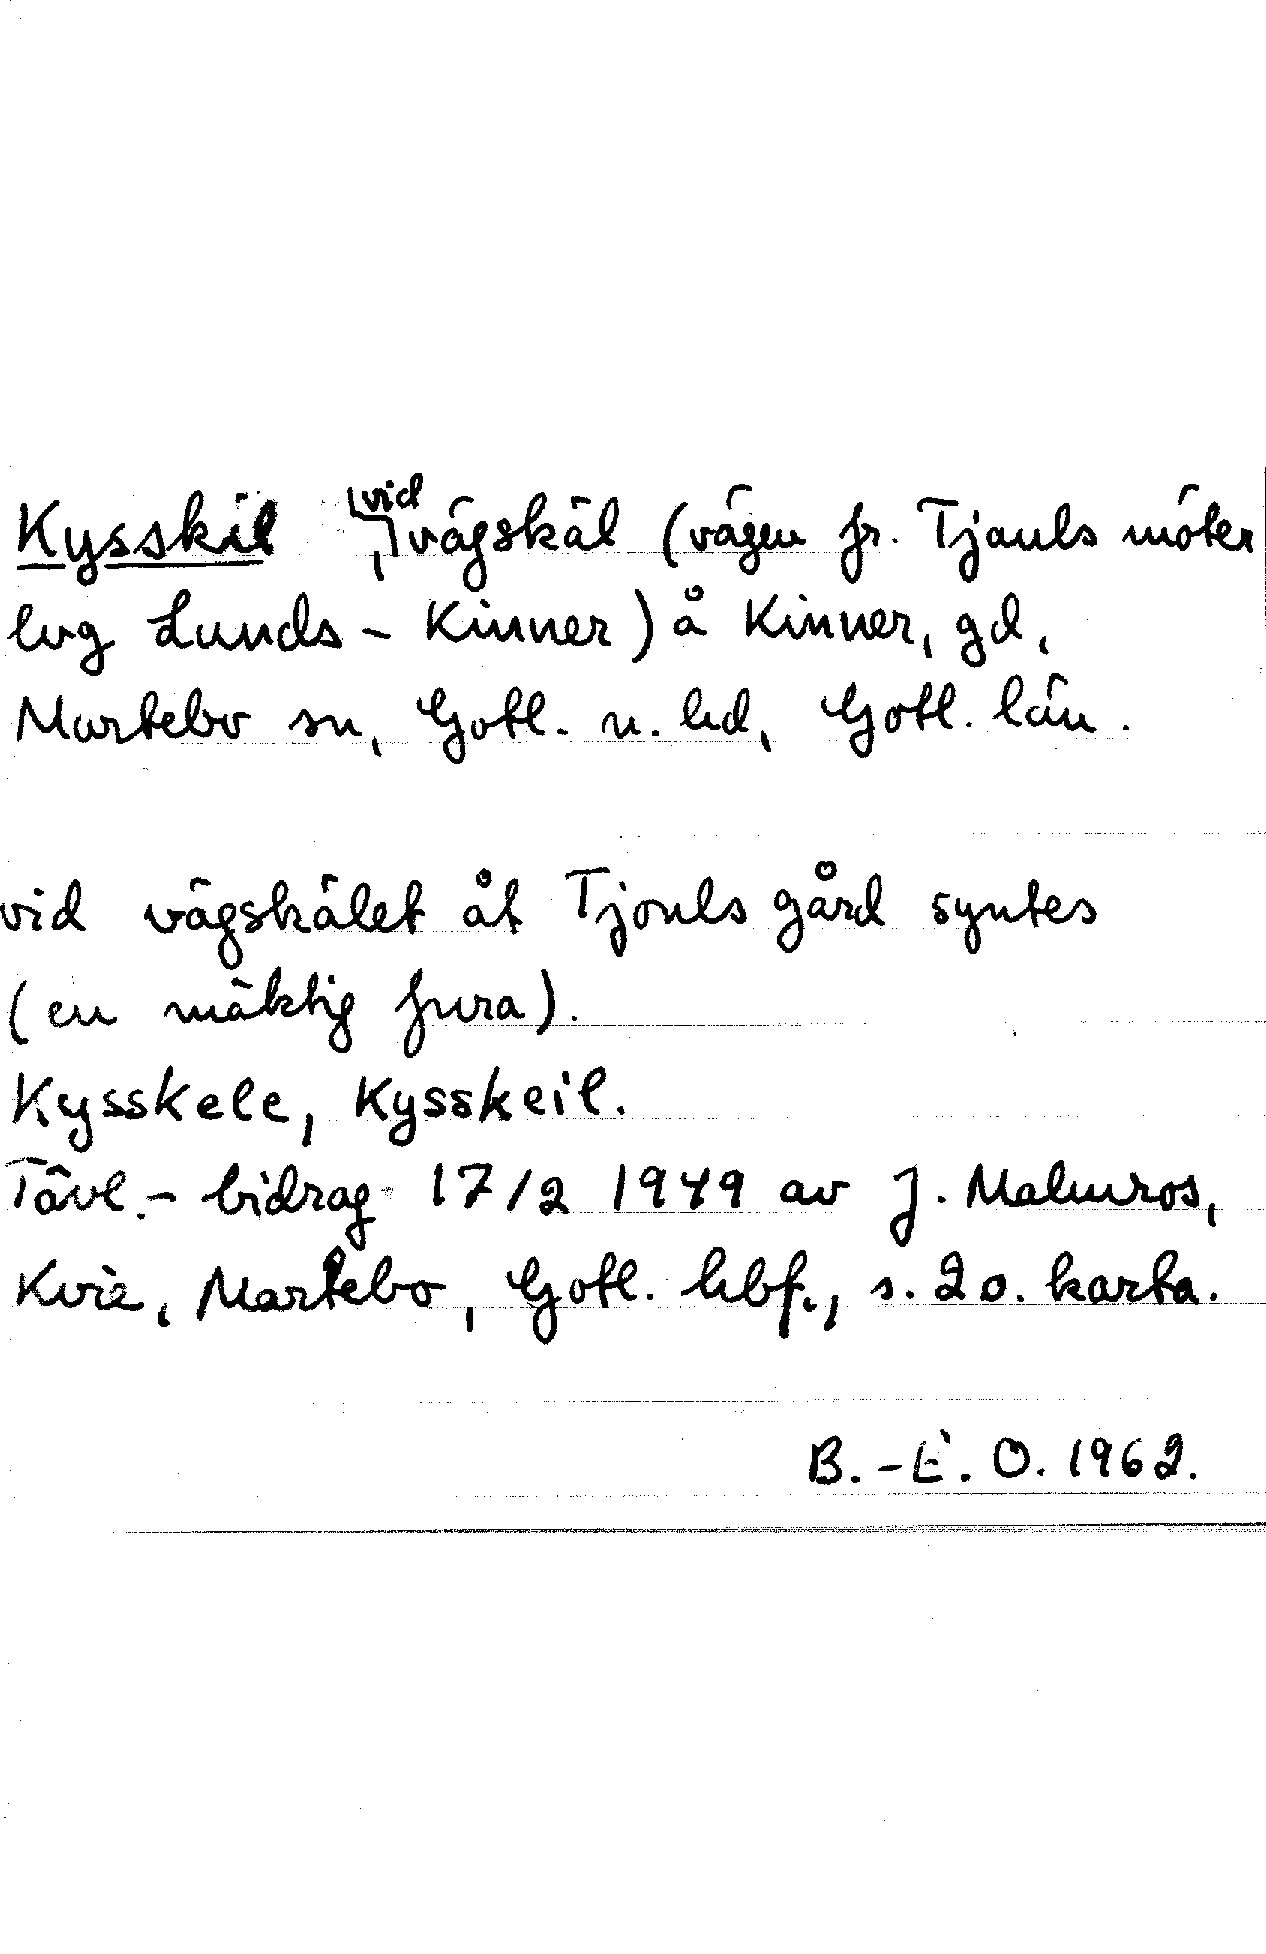 Kysskil vid vägskäl (vägen fr. Tjauls möter
lvg Lunds - Kinner) å Kinner, gd,
Martebo sn, Gotl. n. hd, Gotl. län.
vid vägskälet åt Tjouls gård syntes
(en mäktig fura).
Kysskele, Kysskeil.
Tävl.-bidrag 17/2 1949 av J. Malmros,
Kvie, Martebo, Gotl. hbf., s. 20. karta.
B.-E. O. 1962.